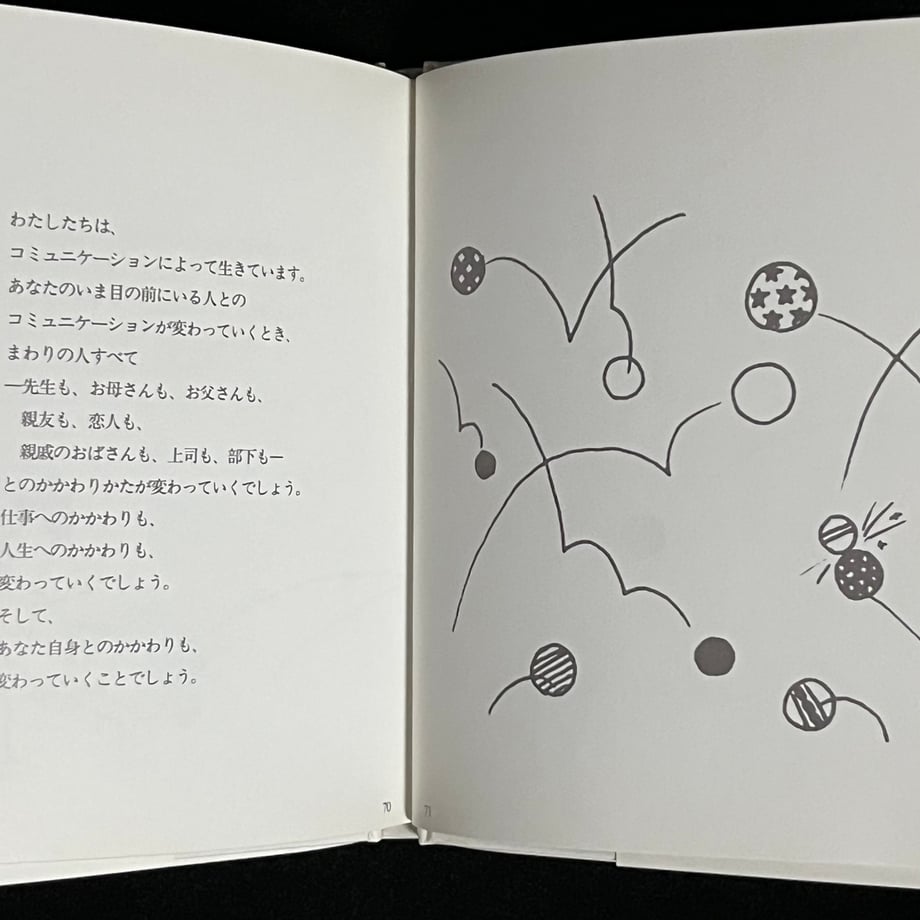 わたしたちは、
コミュニケーションによって生きています。
あなたのいま目の前にいる人との
コミュニケーションが変わっていくとき、
まわりの人すべて
―先生も、お母さんも、お父さんも、
親友も、恋人も、
親戚のおばさんも、上司も、部下も―
とのかかわりかたが変わっていくでしょう。
仕事へのかかわりも、
人生へのかかわりも、
変わっていくでしょう。
そして、
あなた自身とのかかわりも、
変わっていくことでしょう。
70
71